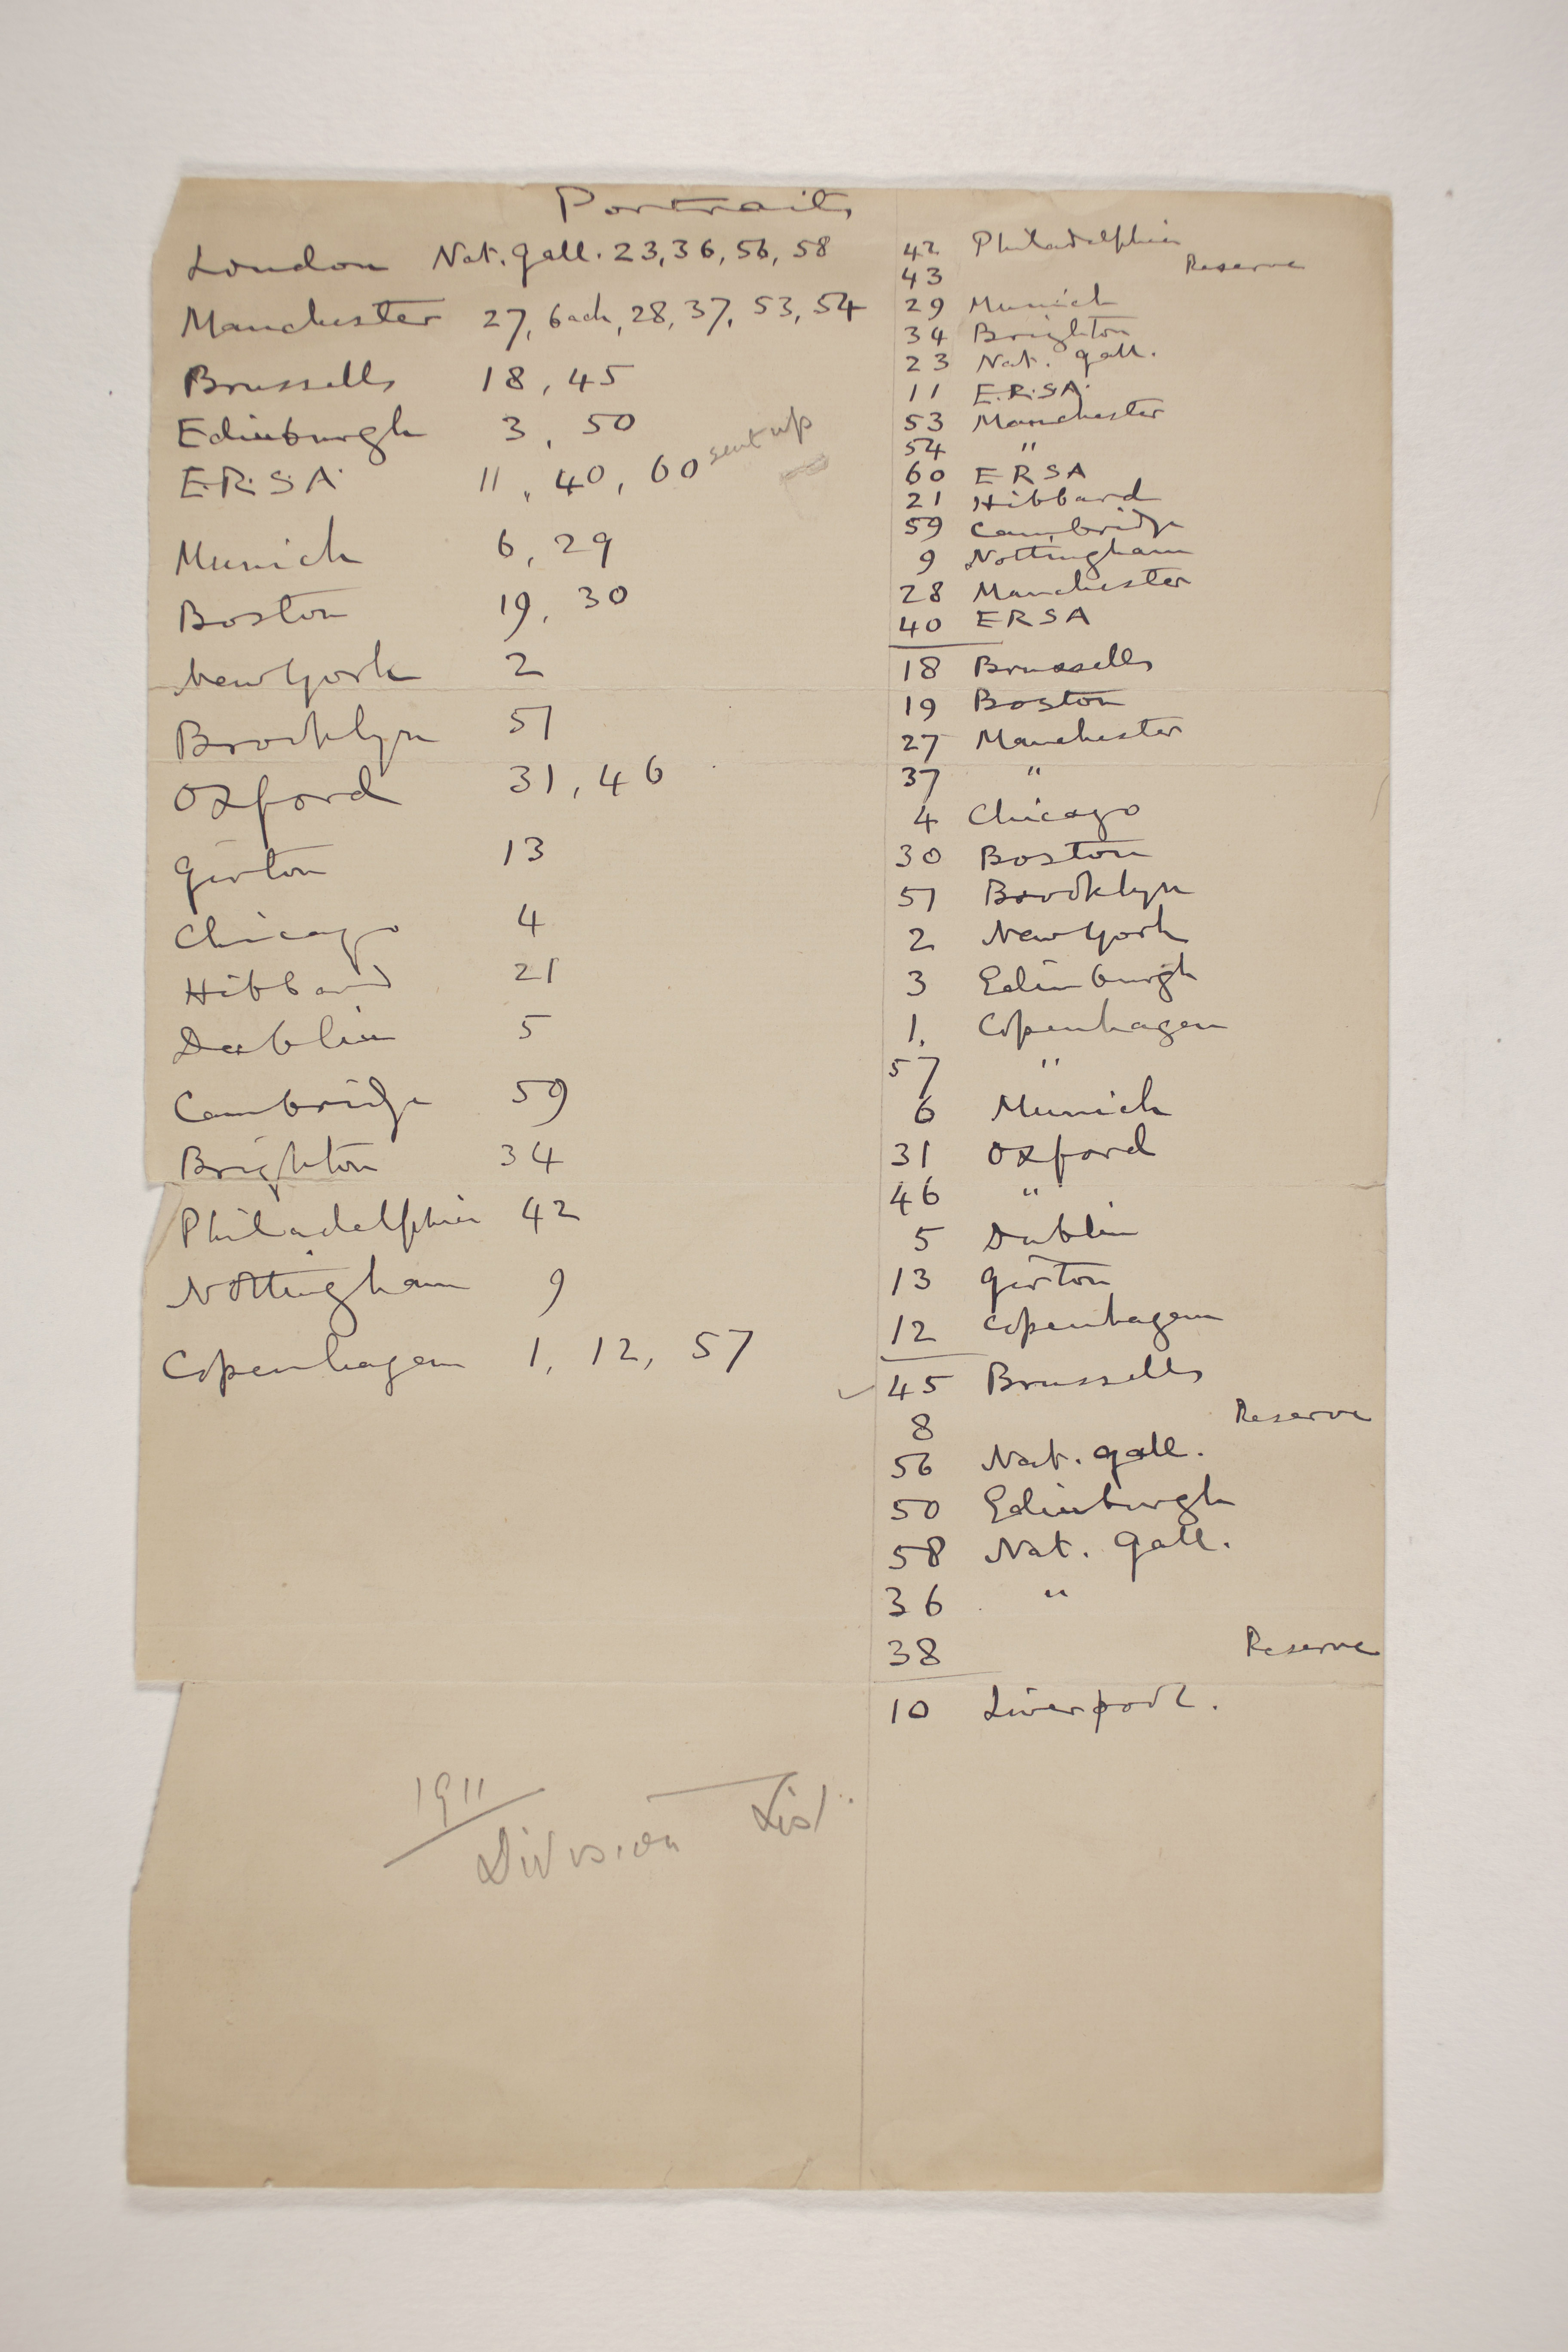 Portraits
London Nat. Gall. 23, 36, 56, 58
Manchester 27, 6ach, 28, 37, 53, 54
Brussells 18, 45
Edinburgh 3, 50
E.R.S.A. 11, 40, 60 sent up
Munich 6, 29
Boston 19, 30
New York 2
Brooklyn 51
Oxford 31, 46
Girton 13
Chicago 4
Hibbard 21
Dublin 5
Cambridge 59
Brighton 34
Philadelphia 42
Nottingham 9
Copenhagen 1, 12, 57
1911
Division List
42 Philadelphia
43 Reserve
29 Munich
34 Brighton
23 Nat. Gall.
11 E.R.S.A.
53 Manchester
54 "
60 E R S A
21 Hibbard
59 Cambridge
9 Nottingham
28 Manchester
40 E R S A
18 Brussells
19 Boston
27 Manchester
37 "
4 Chicago
30 Boston
51 Brooklyn
2 New York
3 Edinburgh
1. Copenhagen
57 "
6 Munich
31 Oxford
46 "
5 Dublin
13 Girton
12 Copenhagen
45 Brussells
8 Reserve
56 Nat. Gall.
50 Edinburgh
58 Nat. Gall.
36 "
38 Reserve
10 Liverpool.